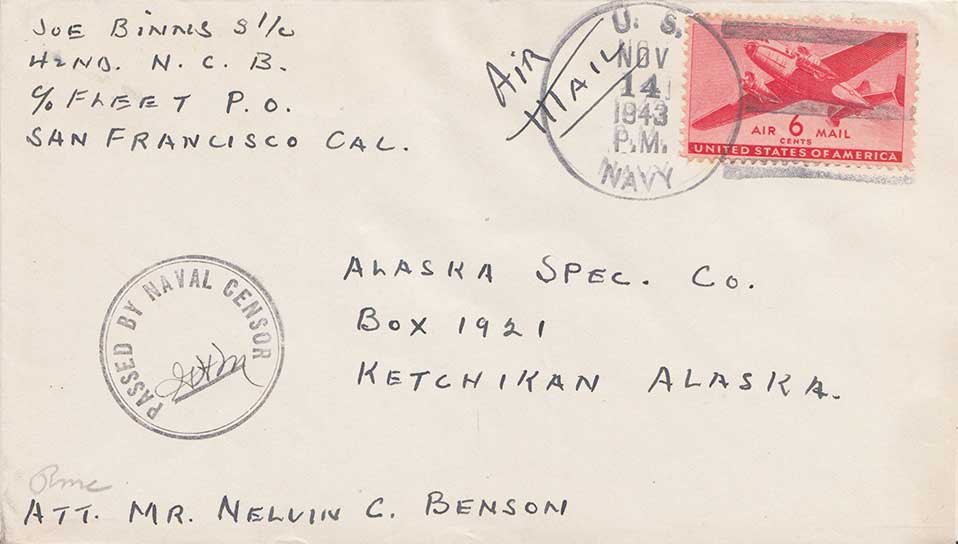 JOE BINNS S 1/c
42ND. N. C. B.
c/o FLEET P. O.
SAN FRANCISCO CAL.
Air
MAIL
U. S.
NOV
14
1943
P.M.
NAVY
AIR 6 MAIL
CENTS
UNITED STATES OF AMERICA
PASSED BY NAVAL CENSOR
ALASKA SPEC. CO.
BOX 1921
KETCHIKAN ALASKA.
ATT. MR. NELVIN C. BENSON